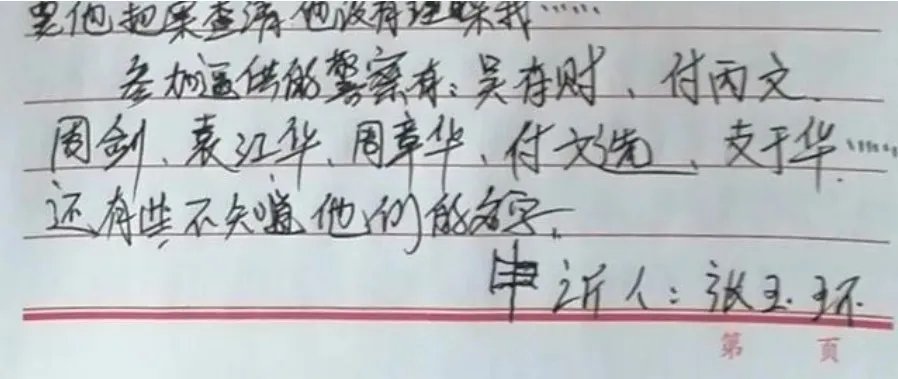 要他把案查清他没有理睬我……
参加逼供的警察有:吴存财、付丙文、
周剑、袁江华、周章华、付文先、支于华……
还有些不知道他们的名字。
申诉人:张玉环
第 页